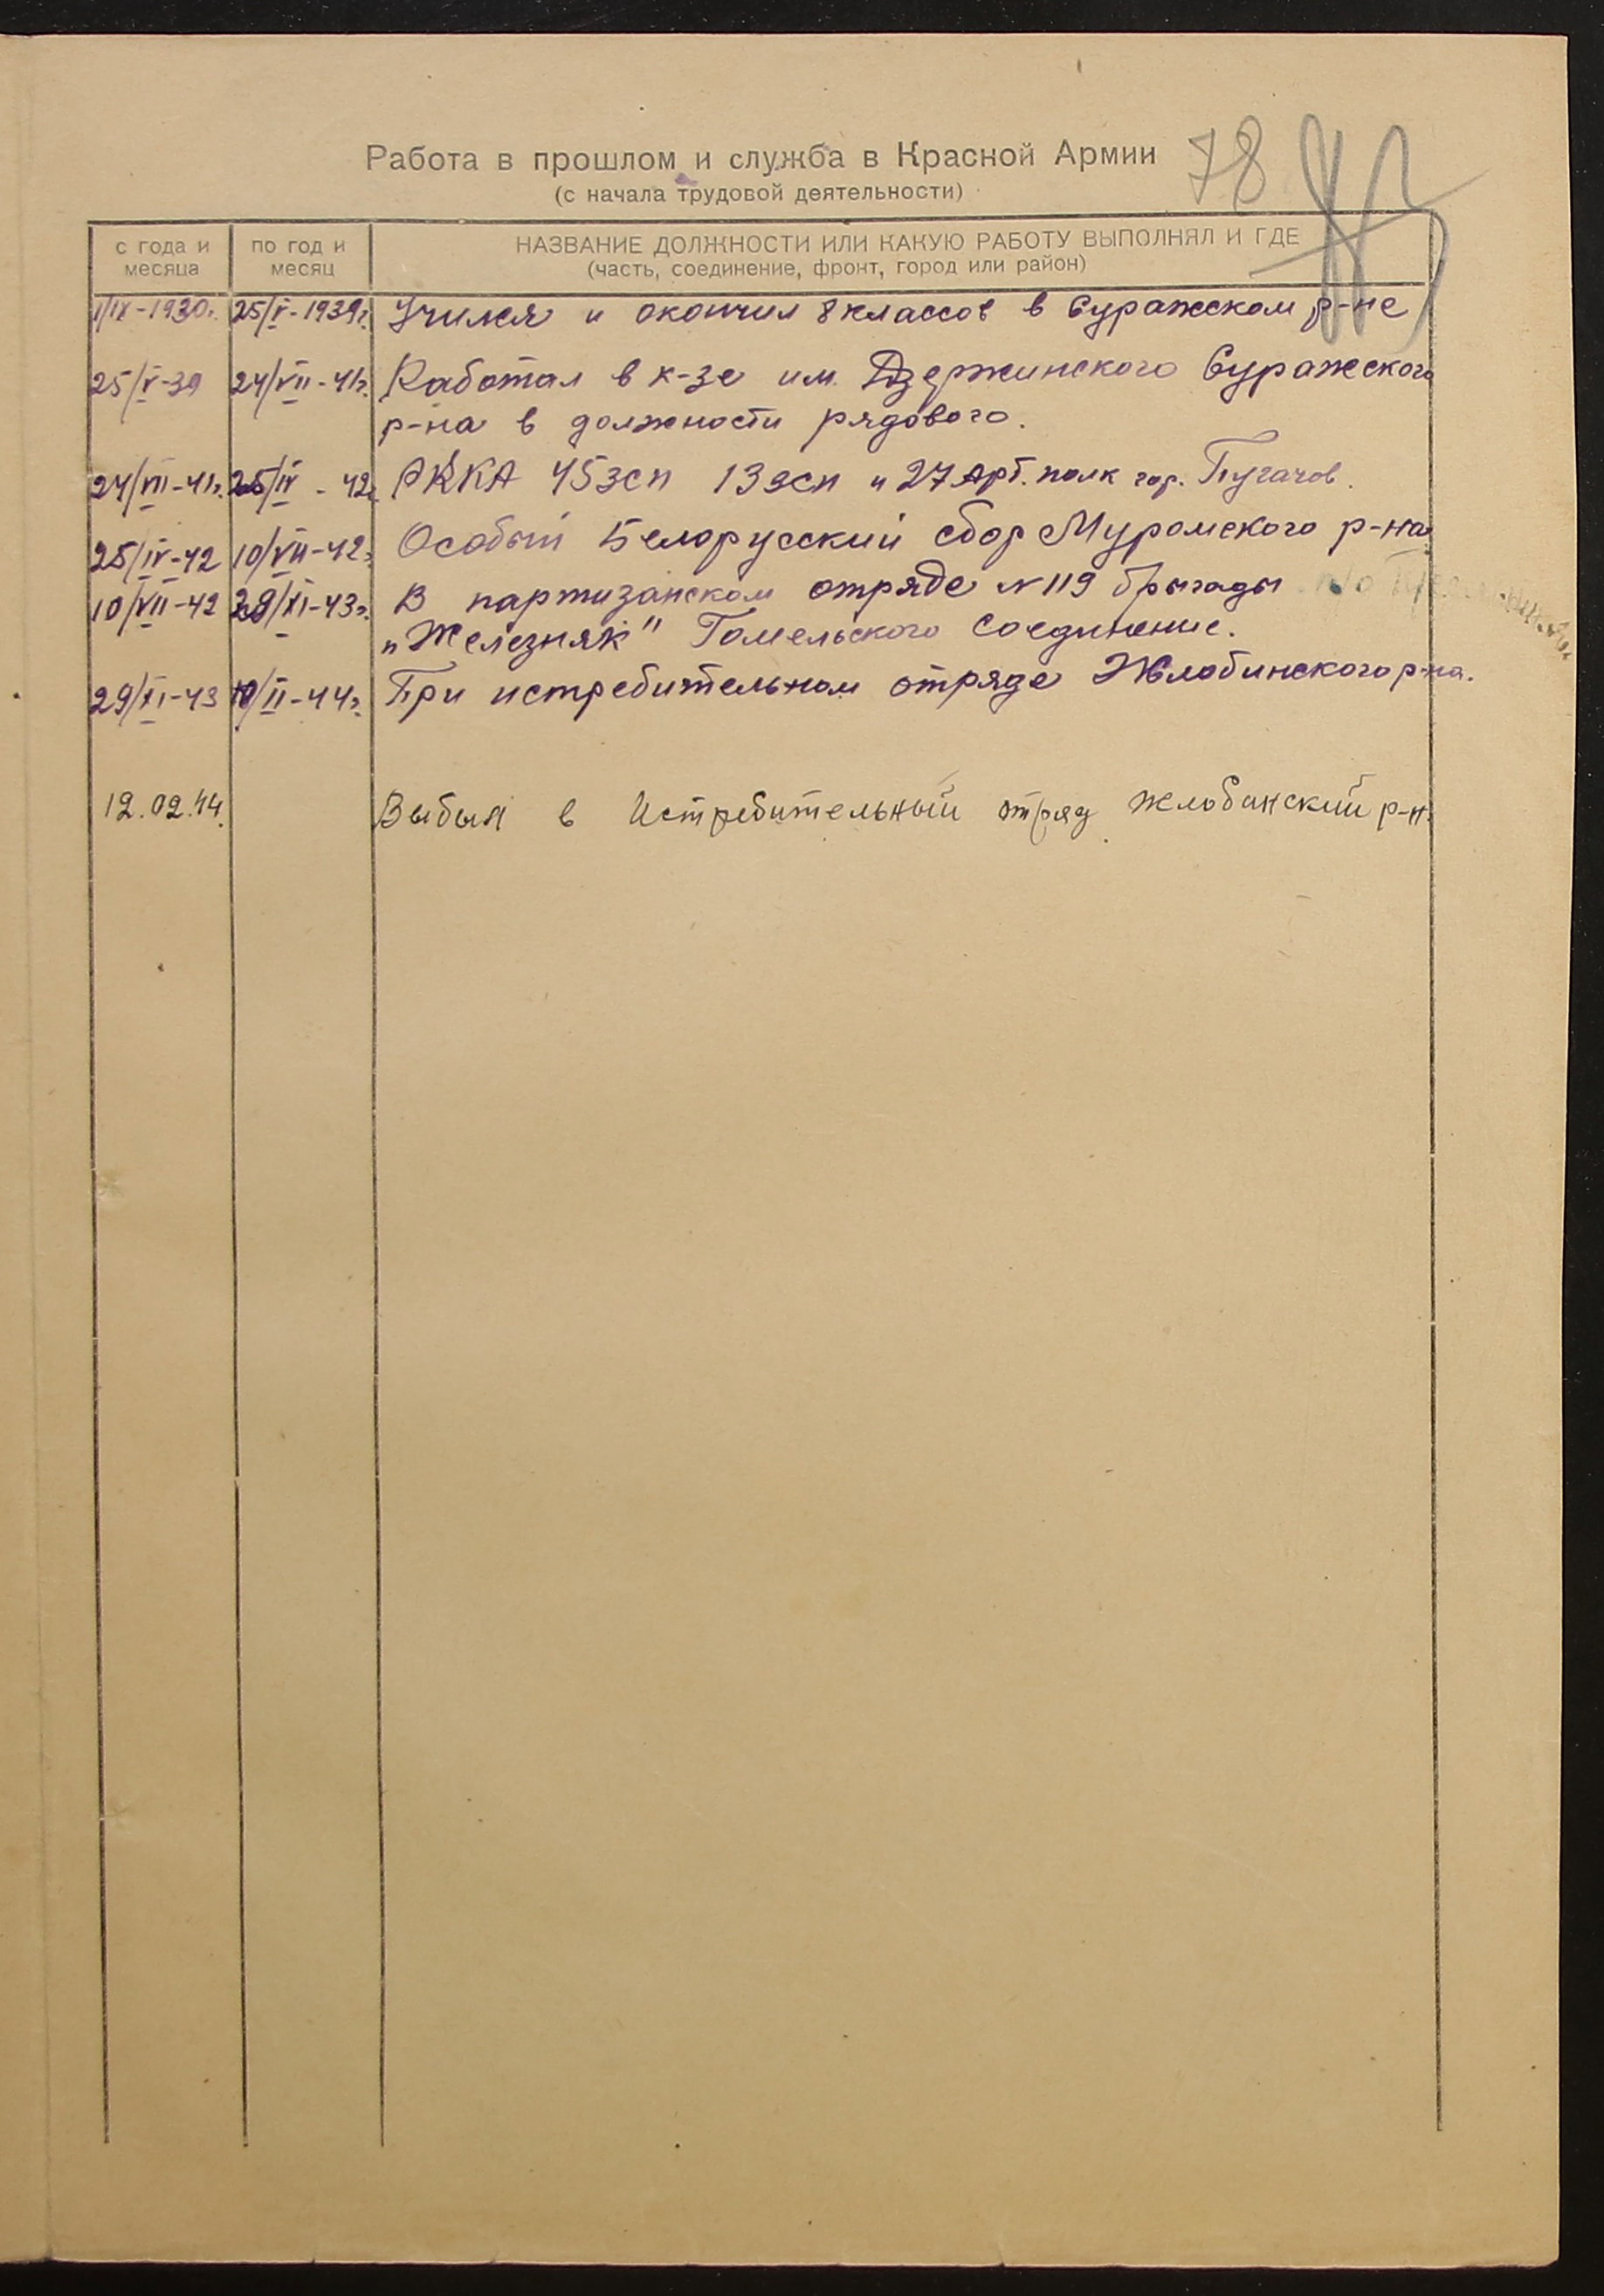 Работа в прошлом и служба в Красной Армии 78
(с начала трудовой деятельности)
с года и месяца по год и месяц НАЗВАНИЕ ДОЛЖНОСТИ ИЛИ КАКУЮ РАБОТУ ВЫПОЛНЯЛ И ГДЕ
(часть, соединение, фронт, город или район)
1/IX-1930г. 25/V-1939г. Учился и окончил 8 классов в Суражском р-не
25/V-39 24/VII-41г. Работал в к-зе им. Дзержинского Суражского
р-на в должности рядового.
24/VII-41г. 25/IV-42г. РККА 45 зсп 13 зсп и 27 арт. полк гор. Пугачов.
25/IV-42 10/VII-42г. Особый Белорусский сбор Муромского р-на
10/VII-42 29/XI-43г. В партизанском отряде N 119 брыгады
„Железняк" Гомельского Соединение.
29/XI-43 10/II-44г. При истребительном отряде Жлобинского р-на.
12.02.44. Выбыл в Истребительный отряд Жлобинский р-н.